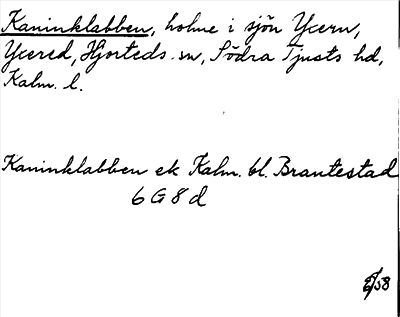 Kaninklabben, holme i sjön Yxern,
Yxered, Hjorteds sn, Södra Tjusts hd,
Kalm. l.
Kaninklabben ek Kalm. bl. Brantestad
6 G 8 d
/58